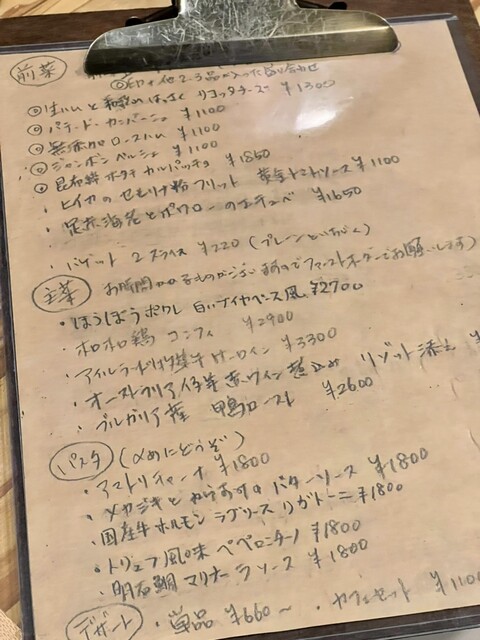 前菜
◎印+他2〜3品が入った盛り合わせ
◎生ハムと和歌山はっさく リコッタチーズ ¥1300
◎パテ・ド・カンパーニュ ¥1100
◎無添加ロースハム ¥1100
◎ジャンボン ペルシエ ¥1100
◎昆布〆ホタテ カルパッチョ ¥1850
・ヒイカのセモリナ粉フリット 黄金トマトソース ¥1100
・足赤海老とポワローのエチュベ ¥1650
・バゲット 2スライス ¥220 (プレーン
主菜
お時間かかるものがございますのでファーストオーダーでお願いします)
・ほうぼうポワレ 白いブイヤベース風 ¥2700
・ホロホロ鶏 コンフィ ¥2900
・アイルランド 牛サーロイン ¥3300
・オーストラリア産 仔羊 赤ワイン煮込み リゾット添え ¥
・ブルガリア産 鴨ロースト ¥2600
パスタ (〆めにどうぞ)
・アマトリチャーナ ¥1800
・メカジキとからすみのバターソース ¥1800
・国産牛ホルモン ラグソース リガトーニ ¥1800
・トリュフ風味 ペペロンチーノ ¥1800
・明石鯛 マリナーラソース ¥1800
デザート ・単品 ¥660〜 ・カフェセット ¥1100